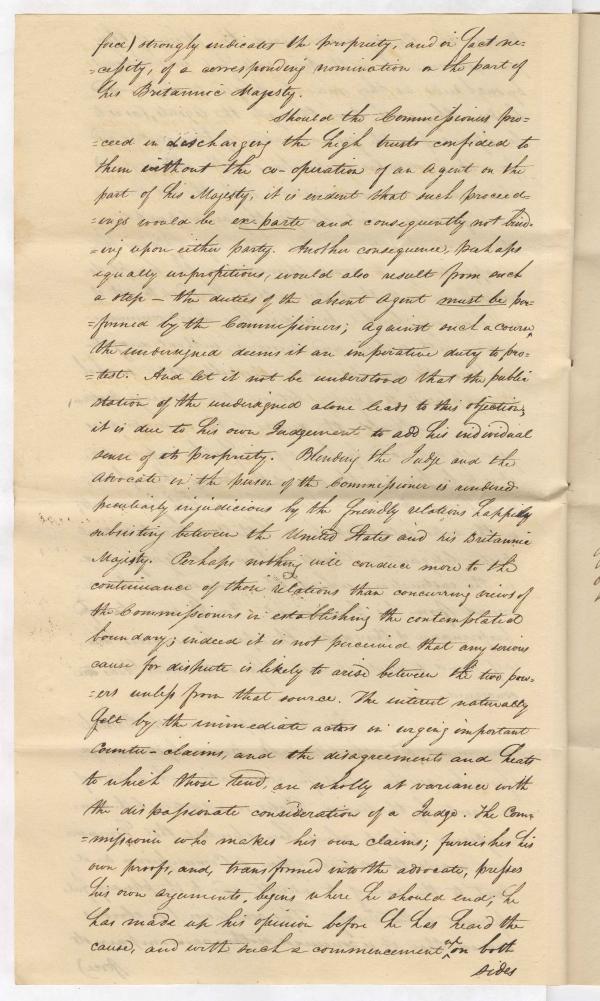 force) strongly indicates the propriety, and in fact ne-
=cessity, of a corresponding nomination on the part of
his Britannic Majesty.
Should the Commissioners pro-
=ceed in discharging the high trusts confided to
them without the co-operation of an Agent on the
part of his Majesty, it is evident that such proceed-
=ings would be ex parte and consequently not bind-
=ing upon either party. Another consequence, perhaps
equally unpropitious, would also result from such
a step – the duties of the absent Agent must be per-
=formed by the Commissioners; against such a course,
the undersigned deems it an imperative duty to pro-
=test. And let it not be understood that the public
station of the undersigned alone leads to this objection;
it is due to his own Judgement to add his individual
sense of its propriety. Blending the Judge and the
Advocate in the person of the Commissioner is rendered
peculiarly injudicious by the friendly relations happily
subsisting between the United States and his Britannic
Majesty. Perhaps nothing will conduce more to the
continuance of those relations than concurring views of
the Commissioners in establishing the contemplated
boundary; indeed it is not perceived that any serious
cause for dispute is likely to arise between the two pow-
=ers unless from that source. The interest naturally
felt by the immediate actors in urging important
counter-claims, and the disagreements and heats
to which those tend, are wholly at variance with
the dispassionate consideration of a Judge. The Com-
=missioner who makes his own claims; furnishes his
own proofs, and, transformed into the advocate, presses
his own arguments, begins where he should end; he
has made up his opinion before he has heard the
cause, and with such a commencement on both
sides